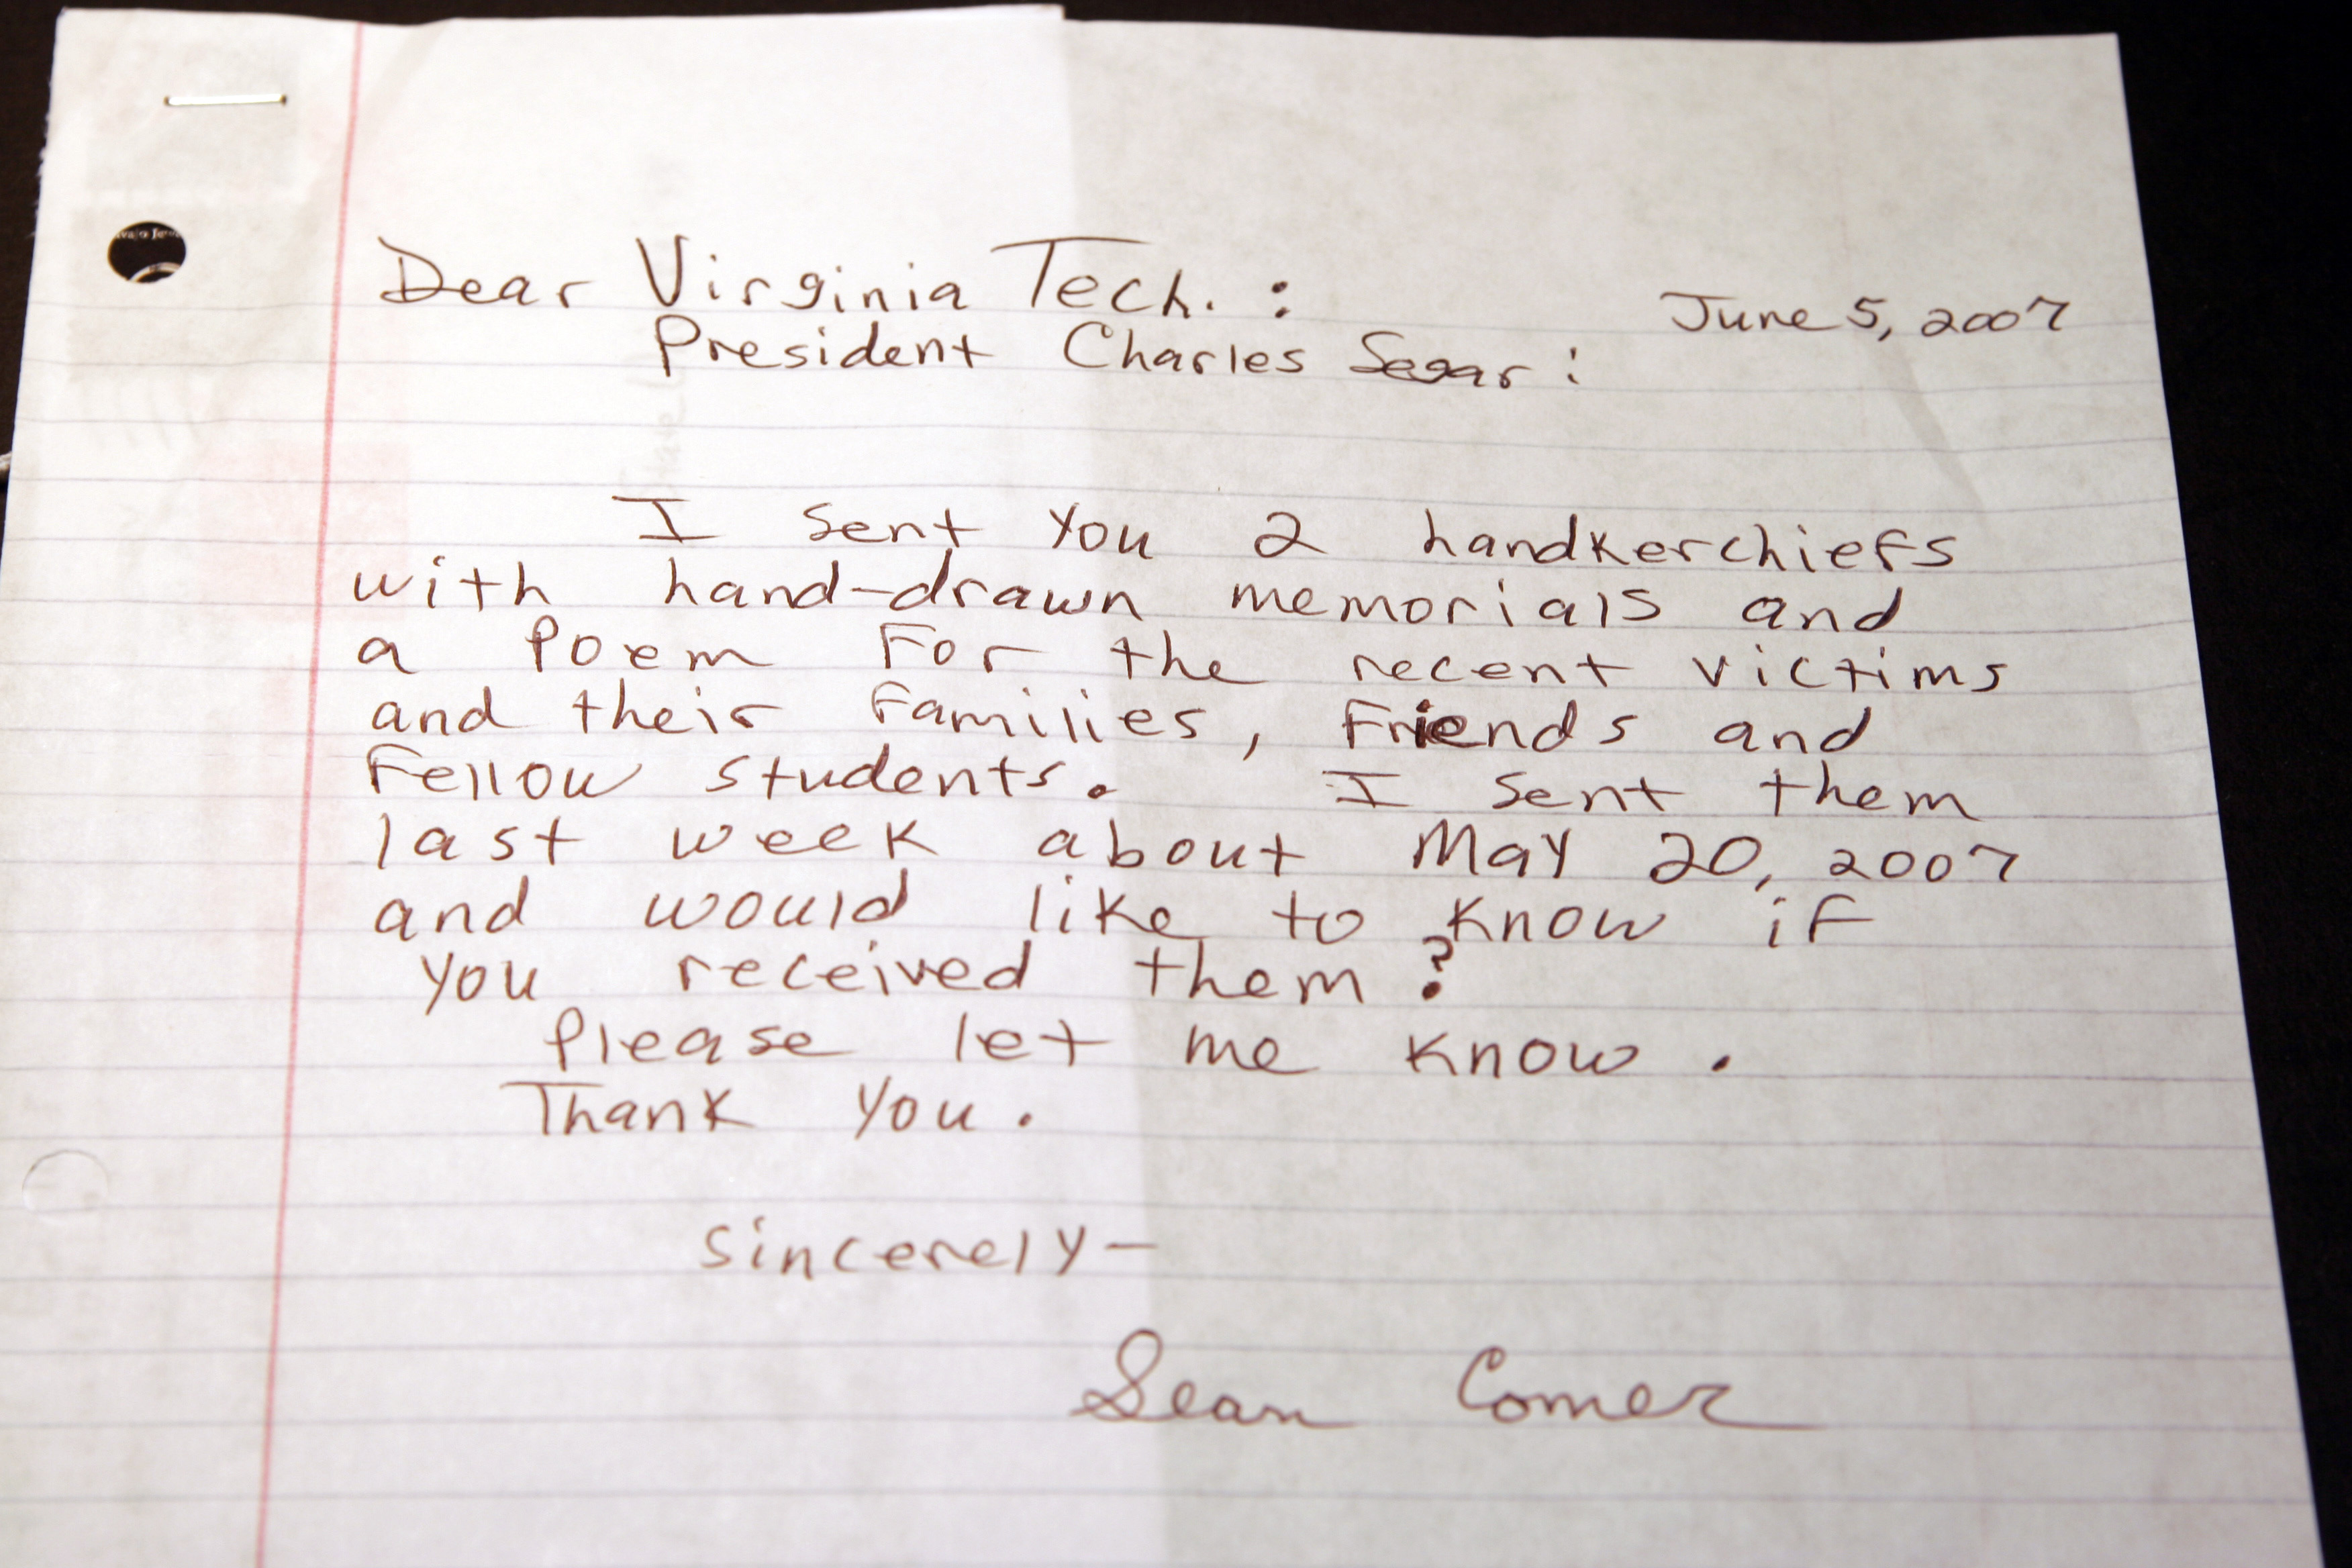 Dear Virginia Tech. :
June 5, 2007
President Charles Segar :
I sent you 2 handkerchiefs
with hand-drawn memorials and
a Poem For the recent victims
and their Families, Friends and
Fellow students. I sent them
last week about May 20, 2007
and would like to know if
you received them ?
Please let me know .
Thank you .
Sincerely -
Sean Comer